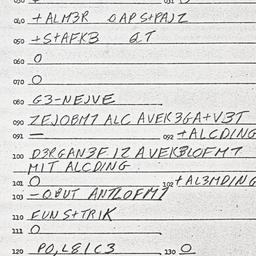 040 +ALM3R OAPS+PAJZ
050 +S+AFK3 GLT
060 O
070 O
080 G3-NEJVE
090 ZEJOBM7 ALC AVEK3GA+V3T
091 — 092 +ALCDING
100 D3RGAN3F IZ AVEK3LOFM7
MIT ALCDING
101 O 102 +AL3MDING
103 -OBUT ANTLOFM7
110 FUNS+TRIK
111 O
120 PO,L8IC3 130 O